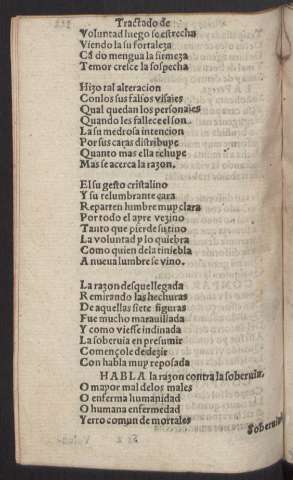 Tractado de
Voluntad luego se estrecha
Viendo la su fortaleza
Cá do mengua la firmeza
Temor cresce la sospecha
Hizo tal alteracion
Con los sus falsos visajes
Qual quedan los personajes
Quando les fallece el son
La su medrosa intencion
Por sus caras distribuye
Quanto mas ella rehuye
Mas se acerca la razon.
El su gesto cristalino
Y su relumbrante cara
Reparten lumbre muy clara
Por todo el ayre vezino
Tanto que pierde su tino
La voluntad y lo quiebra
Como quien de la tiniebla
A nueva lumbre se vino.
La razon desque llegada
Remirando las hechuras
De aquellas siete figuras
Fue mucho marauillada
Y como viesse indinada
La soberuia en presumir
Començole de dezir
Con habla muy reposada
HABLA la razon contra la soberuia.
O mayor mal de los males
O enferma humanidad
O humana enfermedad
Yerro comun de mortales
Soberuia